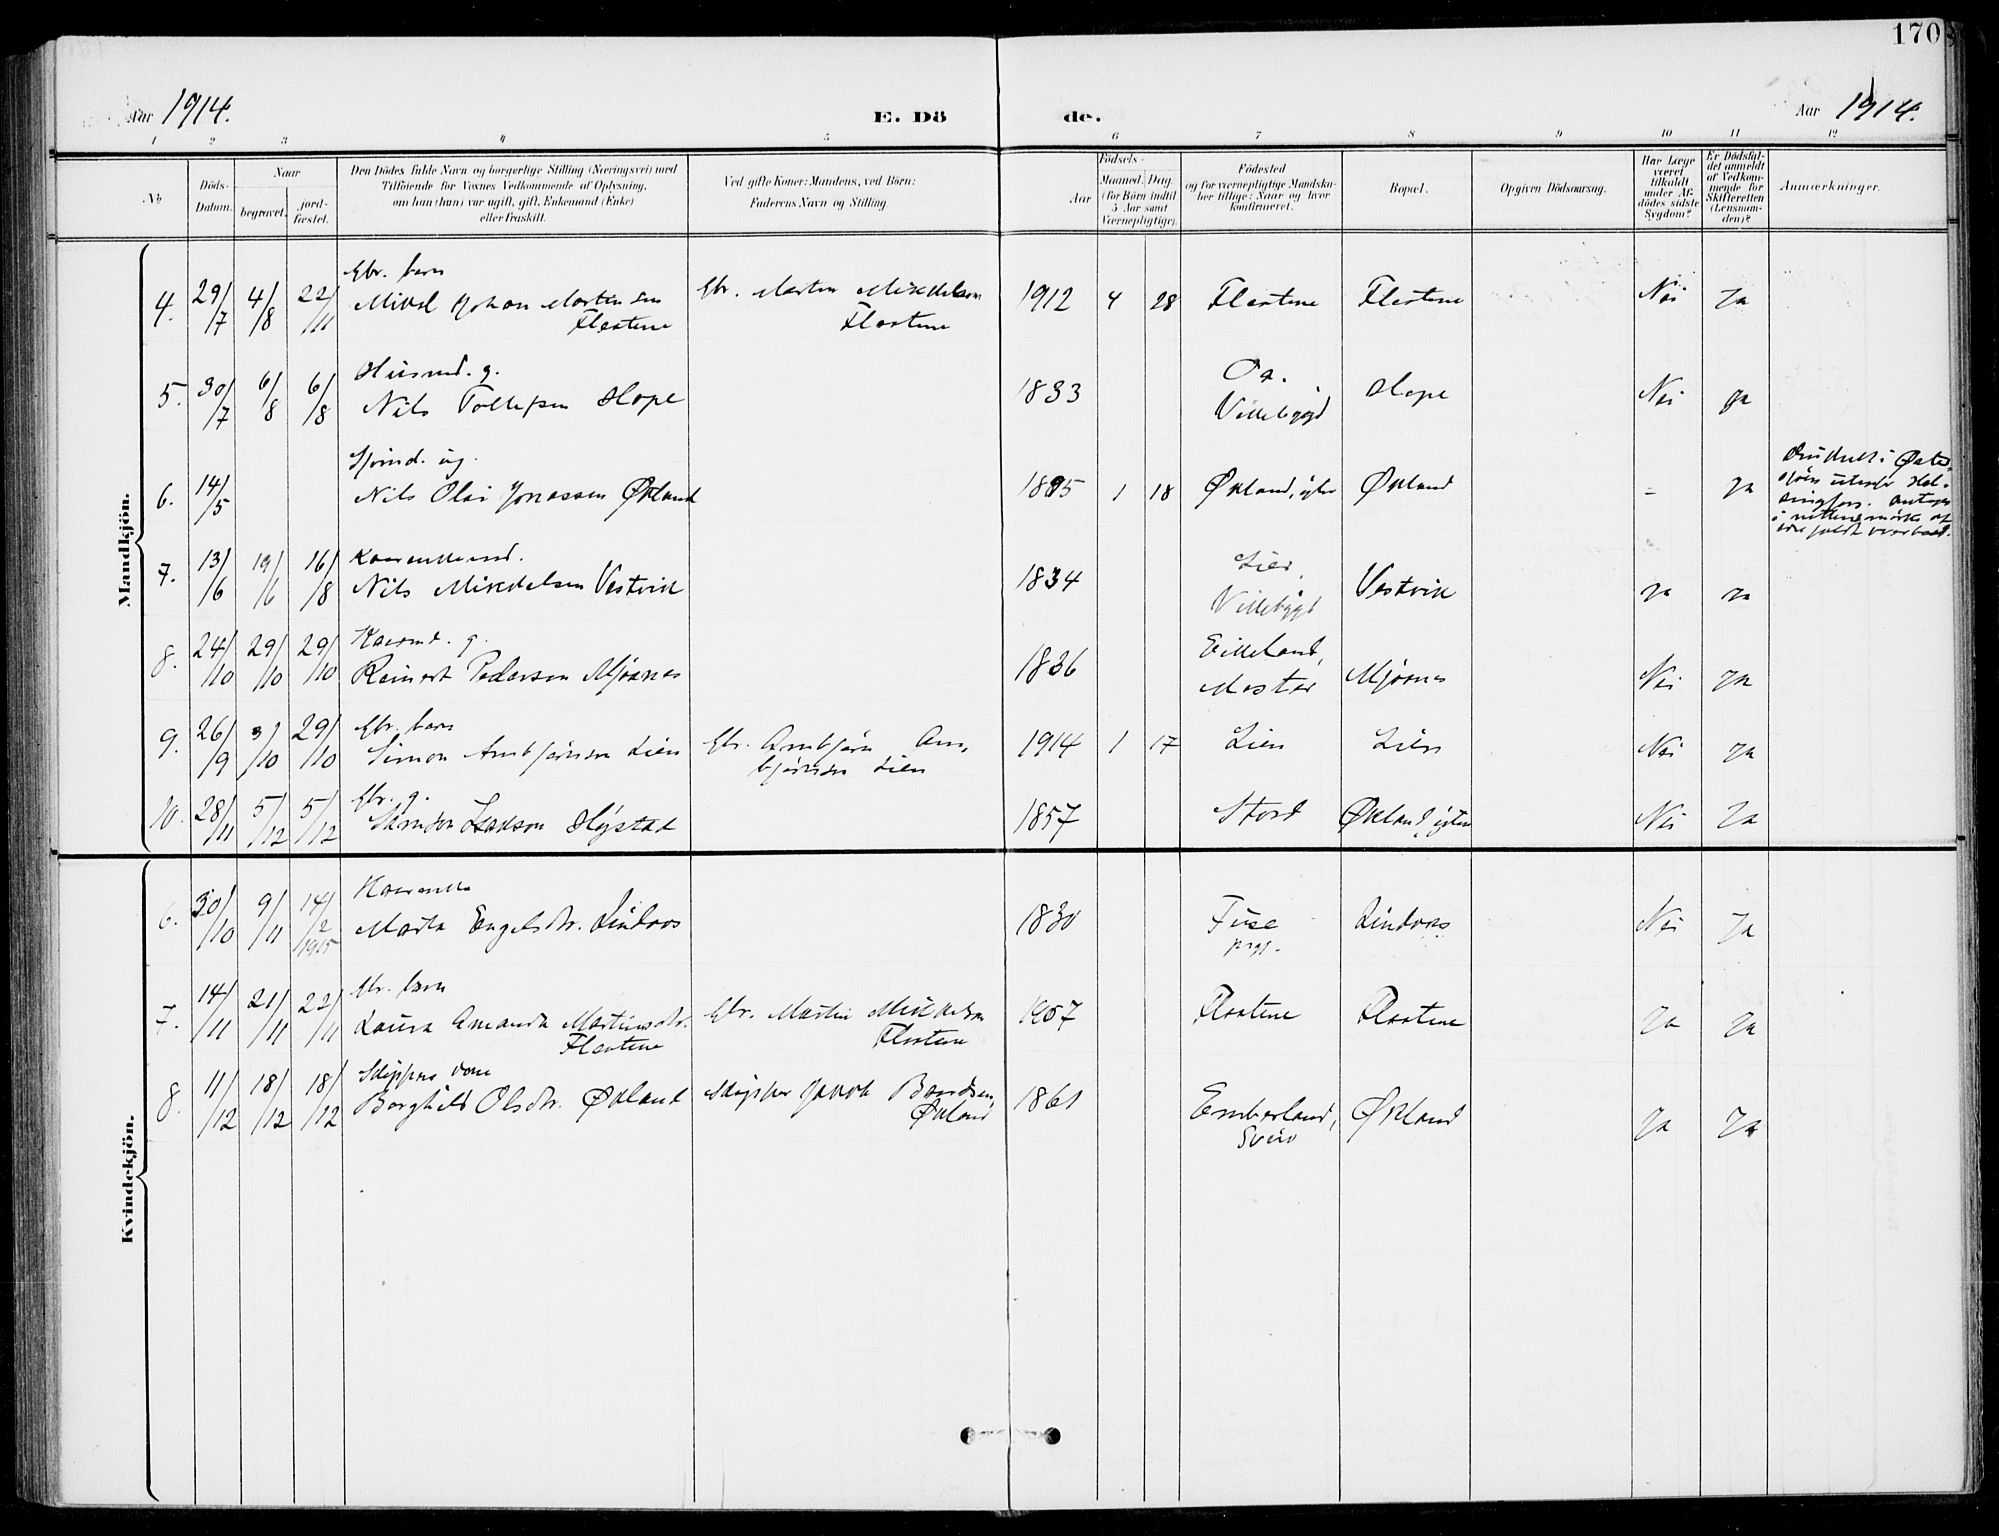 170
Aar 1914.
E. Dö
de.
Aar 1914.
1 2 3 4 5 6 7 8 9 10 11 12
No
Döds-
Datum.
Naar
begravet.
jord-
fæstet.
Den Dödes fulde Navn og borgerlige Stilling (Næringsvei) med
Tilföiende for Voxnes Vedkommende af Oplysning,
om han (hun) var ugift, gift, Enkemand (Enke)
eller fraskilt.
Ved gifte Koner: Mandens, ved Börn:
Faderens Navn og Stilling.
Aar
Födsels-
Maaned. Dag.
(for Börn indtil
5 Aar samt
Værnepligtige).
Födested
og for værnepligtige Mandska-
ber tillige: Naar og hvor
konfirmeret.
Bopæl.
Opgiven Dödsaarsag.
Har Læge
været
tilkaldt
under Af-
dödes sidste
Sygdom?
Er Dödsfal-
det anmeldt
af Vedkom-
mende for
Skifteretten
(Lensman-
den)?
Anmærkninger.
Mandkjön.
4. 29/7 4/8 22/11 Gbr. barn
Mikal Johan Martensen
Flatene
Gbr. Marten Mikkelsen
Flatene
1912 4 28 Flatene Flatene Nei Ja
5. 30/7 6/8 6/8 Husmd. g.
Nils Tollefsen Hope
1833
Vikebygd
Hope Nei Ja
6. 14/5 ug.
Nils Olai Jonassen Økland
1895 1 18 Økland, ytre Økland - Ja
7. 13/6 19/6 16/8 Kaarenkemd.
Nils Mikkelsen Vestvik
1834 Lier,
Vikebygd
Vestvik Ja Ja
8. 24/10 29/10 29/10 Kaarmd. g.
Reinert Pedersen Mjøsnes
1836 Eikeland,
Moster
Mjøsnes Nei Ja
9. 26/9 3/10 29/10 Gbr. barn
Simon Arnbjørnsen Lien
Gbr. Arnbjørn Arn-
bjørnsen Lien
1914 1 17 Lien Lien Nei Ja
10. 28/11 5/12 5/12 Gbr. g.
Samson Isakson Høystad
1857 Stord Økland, ytre Nei Ja
Kvindekjön.
6. 30/10 9/11 14/2 1915 Kaarenke
Marta Engelsdtr. Lindaas
1830 Fuse
prgj.
Lindaas Nei Ja
7. 14/11 21/11 22/11 Gbr. barn
Laura Amanda Martinsdtr.
Flatene
Gbr. Martin Mikkelsen
Flatene
1907 Flatene Flatene Ja Ja
8. 11/12 18/12 18/12 Skippers kone
Borghild Olsdtr. Økland
Skipper Jakob Baardsen,
Økland
1861 Emberland,
Sveio
Økland Ja Ja